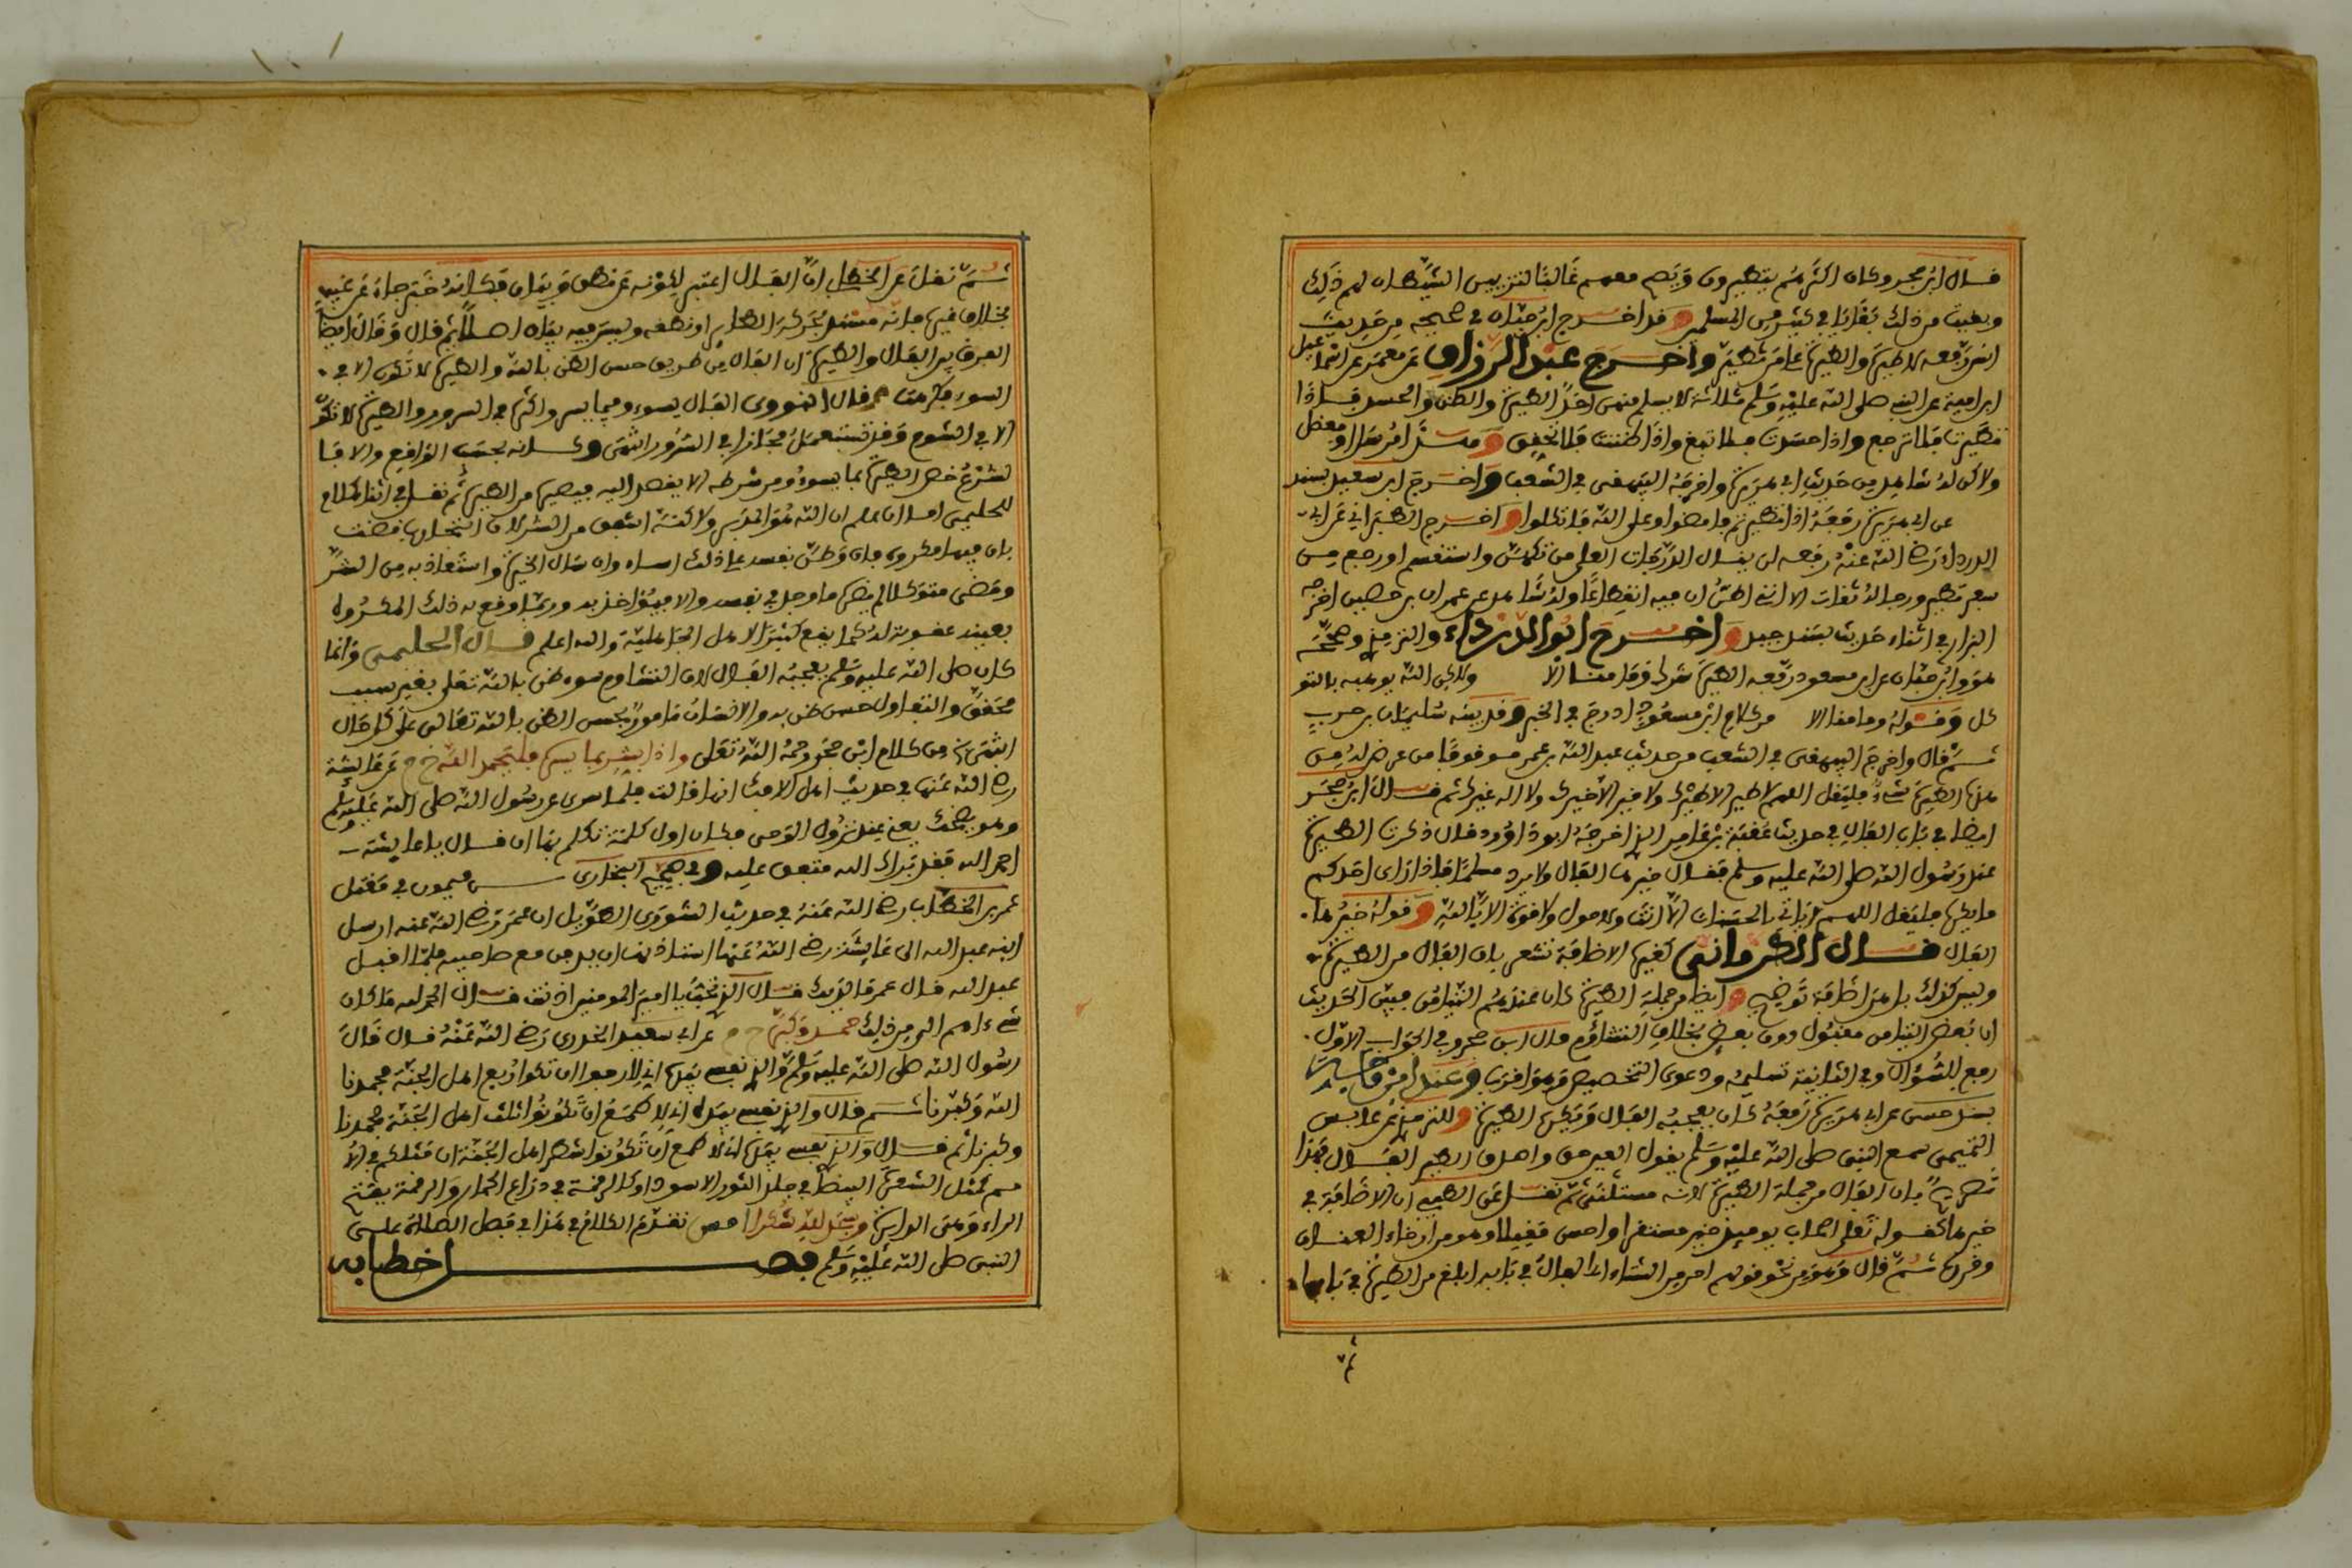 قال ابن حجر وكان اكثرهم يتطيرون ويصح معهم غالبا لتزيين الشيطان لهم ذلك
وبقيت من ذلك بقايا في كثير من المسلمين وقد اخرج ابن حبان في صحيحه من حديث
انس رفعه لا طيرة والطيرة على من تطير واخرج عبد الرزاق عن معمر عن اسماعيل
ابن امية عن النبي صلى الله عليه وسلم ثلاثة لا يسلم منهن احد الطيرة والظن والحسد فاذا
تطيرت فلا ترجع واذا حسدت فلا تبغ واذا ظننت فلا تحقق وهذا مرسل او معضل
ولاكن له شاهد من حديث ابي هريرة واخرجه البيهقي في الشعب واخرج ابن سعيد بسند
عن ابي هريرة رفعه اذا تطيرتم فامضوا وعلى الله فتوكلوا واخرج الطبراني عن ابي
الدرداء رضي الله عنه رفعه لن ينال الدرجات العلى من تكهن واستقسم او رجع من
سفر تطير ورجاله ثقات الا انني اظن ان فيه انقطاعا وله شاهد عن عمران بن حصين اخرجه
البزار في اثناء حديث بسند جيد واخرج ابو الدرداء والترمذي وصححه
هو وابن حبان عن ابن مسعود رفعه الطيرة شرك وما منا الا ولاكن الله يذهبه بالتو
كل وقوله وما منا الا من كلام ابن مسعود ادرج في الخبر وقد بينه سليمان بن حرب
ثم قال واخرج البيهقي في الشعب من حديث عبد الله بن عمر موقوفا من عرض له من
هذه الطيرة شيء فليقل اللهم لا طير الا طيرك ولا خير الا خيرك ولا اله غيرك ثم قال ابن حجر
ايضا في باب الفال في حديث عقبة بن عامر الذي اخرجه ابو داوود قال ذكرت الطيرة
عند رسول الله صلى الله عليه وسلم فقال خيرها الفال ولا يرد مسلما فاذا راى احدكم
ما يكره فليقل اللهم لا ياتي بالحسنات الا انت ولا حول ولا قوة الا بالله وقوله خيرها
الفال قال الكرماني كغيره الاضافة تشعر بان الفال من الطيرة
وليس كذلك بل هي اضافة توضيح وايضا من جملة الطيرة كان عندهم التيامن فبين الحديث
ان بعض التيامن مقبول دون بعض بخلاف التشاؤم قال ابن حجر وفي الجواب الاول
رفع للسؤال وفي الثاني تسليمه ودعوى التخصيص وهو اقرب وعند ابن ماجه
بسند حسن عن ابي هريرة رفعه كان يعجبه الفال ويكره الطيرة وللترمذي عن حابس
التميمي سمع النبي صلى الله عليه وسلم يقول العين حق واصدق الطير الفال فهذا
تصريح بان الفال من جملة الطيرة لاكنه مستثنى ثم نقل عن الطيبي ان الاضافة في
خيرها كقوله تعلى اصحاب يومئذ خير مستقرا واحسن مقيلا وهو من ارخاء العنان
وغيره ثم قال وهو من نحو قولهم احر من الشتاء اي الفال في بابه ابلغ من الطيرة في بابها
ثم
ثم نقل عن الخطابي ان الفال اعتبر لكونه عن نطق وبيان فكانه خبر جاء عن غيب
بخلاف غيره فانه مستند لحركة الطائر او نطقه وليس فيه بيان اصلا ثم قال وقال ايضا
الفرق بين الفال والطيرة ان الفال من طريق حسن الظن بالله والطيرة لا تكون الا في
السوء فكرهت وقال النووي الفال يسوء وفيما يسر واكثره في السرور والطيرة لا تكون
الا في الشوم وقد تستعمل مجازا في السرور انتهى وكانه بحسب الواقع والا فا
لشرع خص الطيرة بما يسوء ومن شرطه الا يقصد اليه فيصير من الطيرة ثم نقل في اثناء كلام
للحليمي اما ان علم ان الله هو المدبر ولاكنه اشفق من الشر لان التجارب قضت
بان فيها مكروه فان وطن نفسه على ذلك اساء وان سال الخير واستعاذ به من الشر
ومضى متوكلا لم يضره ما وجد في نفسه والا فيؤاخذ به وربما وقع به ذلك المكروه
بعينه عقوبة له كما يقع كثيرا لاهل الجاهلية والله اعلم قال الحليمي وانما
كان صلى الله عليه وسلم يعجبه الفال لان التشاوم سوء ظن بالله تعلى بغير سبب
محقق والتفاول حسن ظن به والانسان مامور بحسن الظن بالله تعالى على كل حال
انتهى من كلام ابن حجر رحمه الله تعلى واذا بشر بما يسر فليحمد الله خ م عن عائشة
رضي الله عنها في حديث اهل الافك انها قالت فلما سري عن رسول الله صلى الله عليه وسلم
وهو يضحك يعني عند نزول الوحي فكان اول كلمة تكلم بها ان قال يا عايشة
احمدي الله فقد براك الله متفق عليه وفي صحيح البخاري عن ميمون في مقتل
عمر بن الخطاب رضي الله عنه في حديث الشورى الطويل ان عمر رضي الله عنه ارسل
ابنه عبد الله الى عايشة رضي الله عنها استاذنها ان يدفن مع صاحبيه فلما اقبل
عبد الله قال عمر ما لديك قال الذي تحب يا امير المومنين اذنت قال الحمد لله ما كان
شيء اهم الي من ذلك حمد وكبر خ م عن ابي سعيد الخدري رضي الله عنه قال قال
رسول الله صلى الله عليه وسلم والذي نفسي بيده اني لارجوا ان تكونوا ربع اهل الجنة فحمدنا
الله وكبرنا ثم قال والذي نفسي بيده اني لاطمع ان تكونوا ثلث اهل الجنة فحمدنا
وكبرنا ثم قال والذي نفسي بيده اني لاطمع ان تكونوا شطر اهل الجنة ان مثلكم في الا
مم كمثل الشعرة البيضا في جلد الثور الاسود او كالرقمة في ذراع الحمار والرقمة بفتح
الراء وسجد لله شكرا تقدم الكلام في هذا في فصل الصلاة على
النبي صلى الله عليه وسلم فصل اخطا به